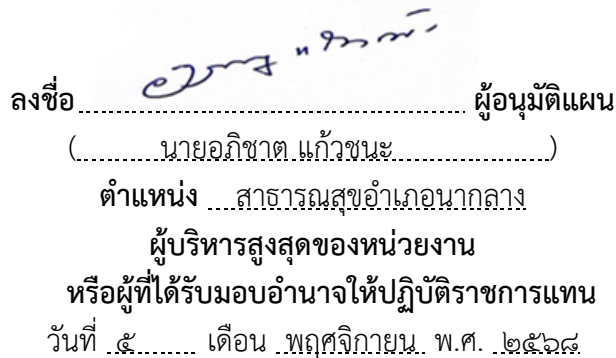 ลงชื่อ ผู้อนุมัติแผน
(นายอภิชาต แก้วชนะ)
ตำแหน่ง สาธารณสุขอำเภอนากลาง
ผู้บริหารสูงสุดของหน่วยงาน
หรือผู้ที่ได้รับมอบอำนาจให้ปฏิบัติราชการแทน
วันที่ ๕ เดือน พฤศจิกายน พ.ศ. ๒๕๖๘